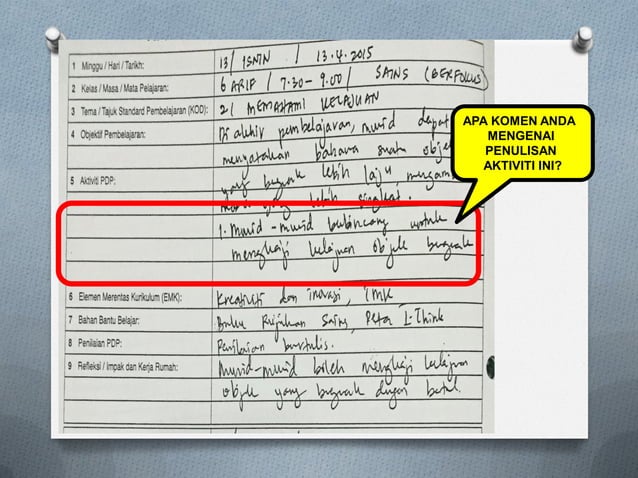 1 Minggu / Hari / Tarikh: 13 / ISNIN / 13.4.2015
2 Kelas / Masa / Mata Pelajaran: 6 ARIF / 7.30 - 9.00 / SAINS (BERFOKUS)
3 Tema / Tajuk Standard Pembelajaran (KOD): 2 / MEMAHAMI KELAJUAN
4 Objektif Pembelajaran: Di akhir pembelajaran, murid dapat
menyatakan bahawa suatu objek
5 Aktiviti PDP: yang bergerak lebih laju, mengambil
masa yang lebih singkat.
1. Murid-murid berbincang untuk
mengkaji kelajuan objek bergerak
6 Elemen Merentas Kurikulum (EMK): Kreativiti dan inovasi, TMK
7 Bahan Bantu Belajar: Buku Rujukan Sains, Peta I-Think
8 Penilaian PDP: Penilaian bertulis.
9 Refleksi / Impak dan Kerja Rumah: Murid-murid boleh mengkaji kelajuan
objek yang bergerak dengan betul.
APA KOMEN ANDA
MENGENAI
PENULISAN
AKTIVITI INI?